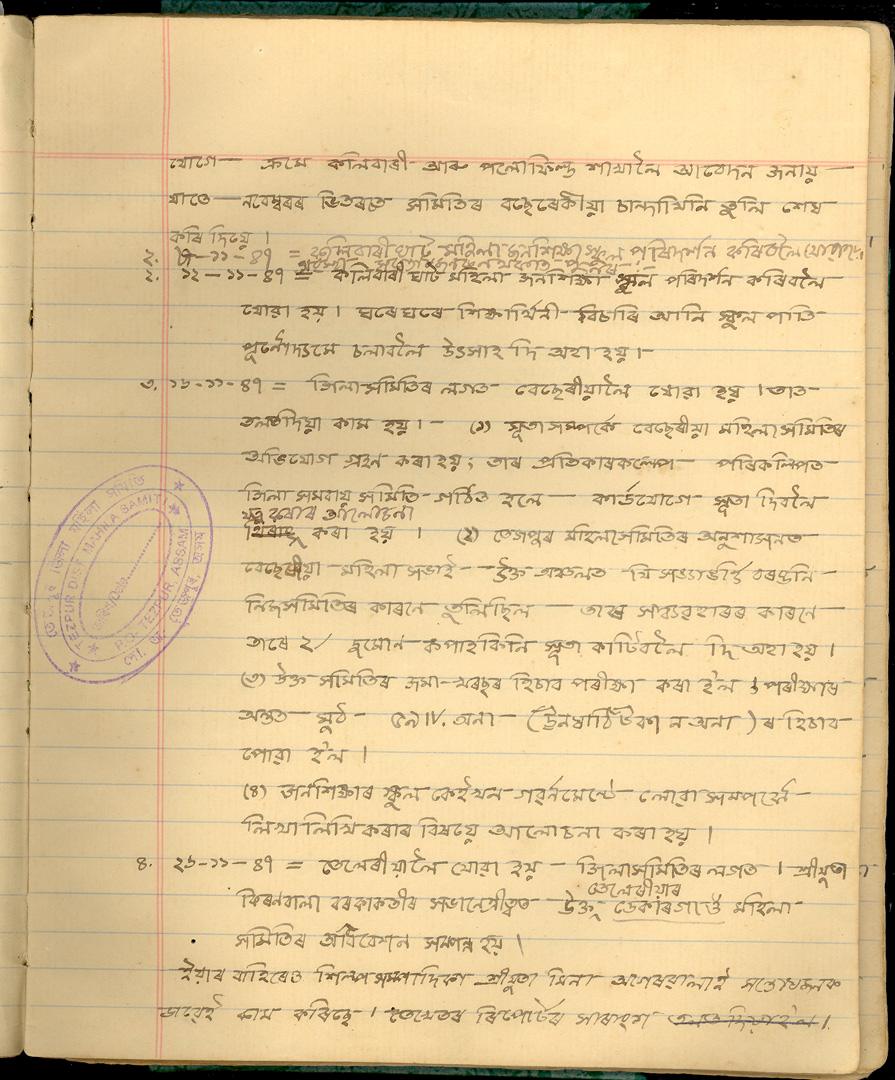 যোগে— ক্ৰমে কলিবাৰী আৰু পলোফিল্ড শাখালৈ আবেদন জনায়—
যাতে— নবেম্বৰৰ ভিতৰতে সমিতিৰ বছেৰেকীয়া চান্দাখিনি তুলি শেষ
কৰি দিয়ে।
২. —১১—৪৭ = কলিবাৰী ঘাট মহিলা জনশিক্ষা স্কুল পৰিদৰ্শন কৰিবলৈ
২. ১২—১১—৪৭ = কলিবাৰী ঘাট মহিলা জনশিক্ষা স্কুল পৰিদৰ্শন কৰিবলৈ
যোৱা হয়। ঘৰে ঘৰে শিক্ষাৰ্থিনী বিচাৰি আনি স্কুল পাতি
পূৰ্ণোদ্যমে চলাবলৈ উৎসাহ দি অহা হয়।—
৩. ১৬-১১-৪৭ = জিলা সমিতিৰ লগত বেছেৰীয়ালৈ যোৱা হয়। তাত
তলতদিয়া কাম হয়।— (১) সূতা সম্পৰ্কে বেছেৰীয়া মহিলা সমিতিৰ
অভিযোগ গ্ৰহন কৰা হয়; তাৰ প্ৰতিকাৰকল্পে পৰিকল্পিত
জিলা সমবায় সমিতি গঠিত হলে— কাৰ্ডযোগে সূতা দিবলৈ
আলোচনা
কৰা হয়। (২) তেজপুৰ মহিলাসমিতিৰ অনুশাসনত
বেছেৰীয়া মহিলা সভাই— উক্ত অঞ্চলত যি বৰঙনি
নিজসমিতিৰ কাৰনে তুলিছিল— তাৰে সদব্যৱহাৰৰ কাৰনে
তাৰে ২/ কপাহকিনি সূতা কাটিবলৈ দি অহা হয়।
(৩) উক্ত সমিতিৰ জমা-খৰছৰ হিচাব পৰীক্ষা কৰা হ'ল। পৰীক্ষাৰ
অন্তত মুঠ— ৫৯৷৷৴. অনা— (ঊনষাঠি টকা ন অনা) ৰ হিচাব
পোৱা হ'ল।
(৪) জনশিক্ষাৰ স্কুল কেইখন গবৰ্নমেন্টে লোৱা সম্পৰ্কে
লিখা লিখি কৰাৰ বিষয়ে আলোচনা কৰা হয়।
৪. ২৬-১১-৪৭ = তেলেৰীয়ালৈ যোৱা হয়— জিলাসমিতিৰ লগত। শ্ৰীযুতা
তেলেৰীয়াৰ
কিৰনবালা বৰকাকতীৰ সভানেত্ৰীত্বত উক্ত ডেকাৰগাওঁ মহিলা
সমিতিৰ অধিবেশন সম্পন্ন হয়।
ইয়াৰ বাহিৰেও শিল্পসম্পাদিকা শ্ৰীযুতা মিনা আগৰৱালাই সন্তোষজনক
ভাবেই কাম কৰিছে। তেখেতৰ ৰিপোৰ্টৰ সাৰাংশ তলত দিয়া হ'ল।
তেজপুৰ জিলা মহিলা সমিতি
TEZPUR DIST. MAHILA SAMITI
P.O. TEZPUR, ASSAM
পো. অ. তেজপুৰ, অসম